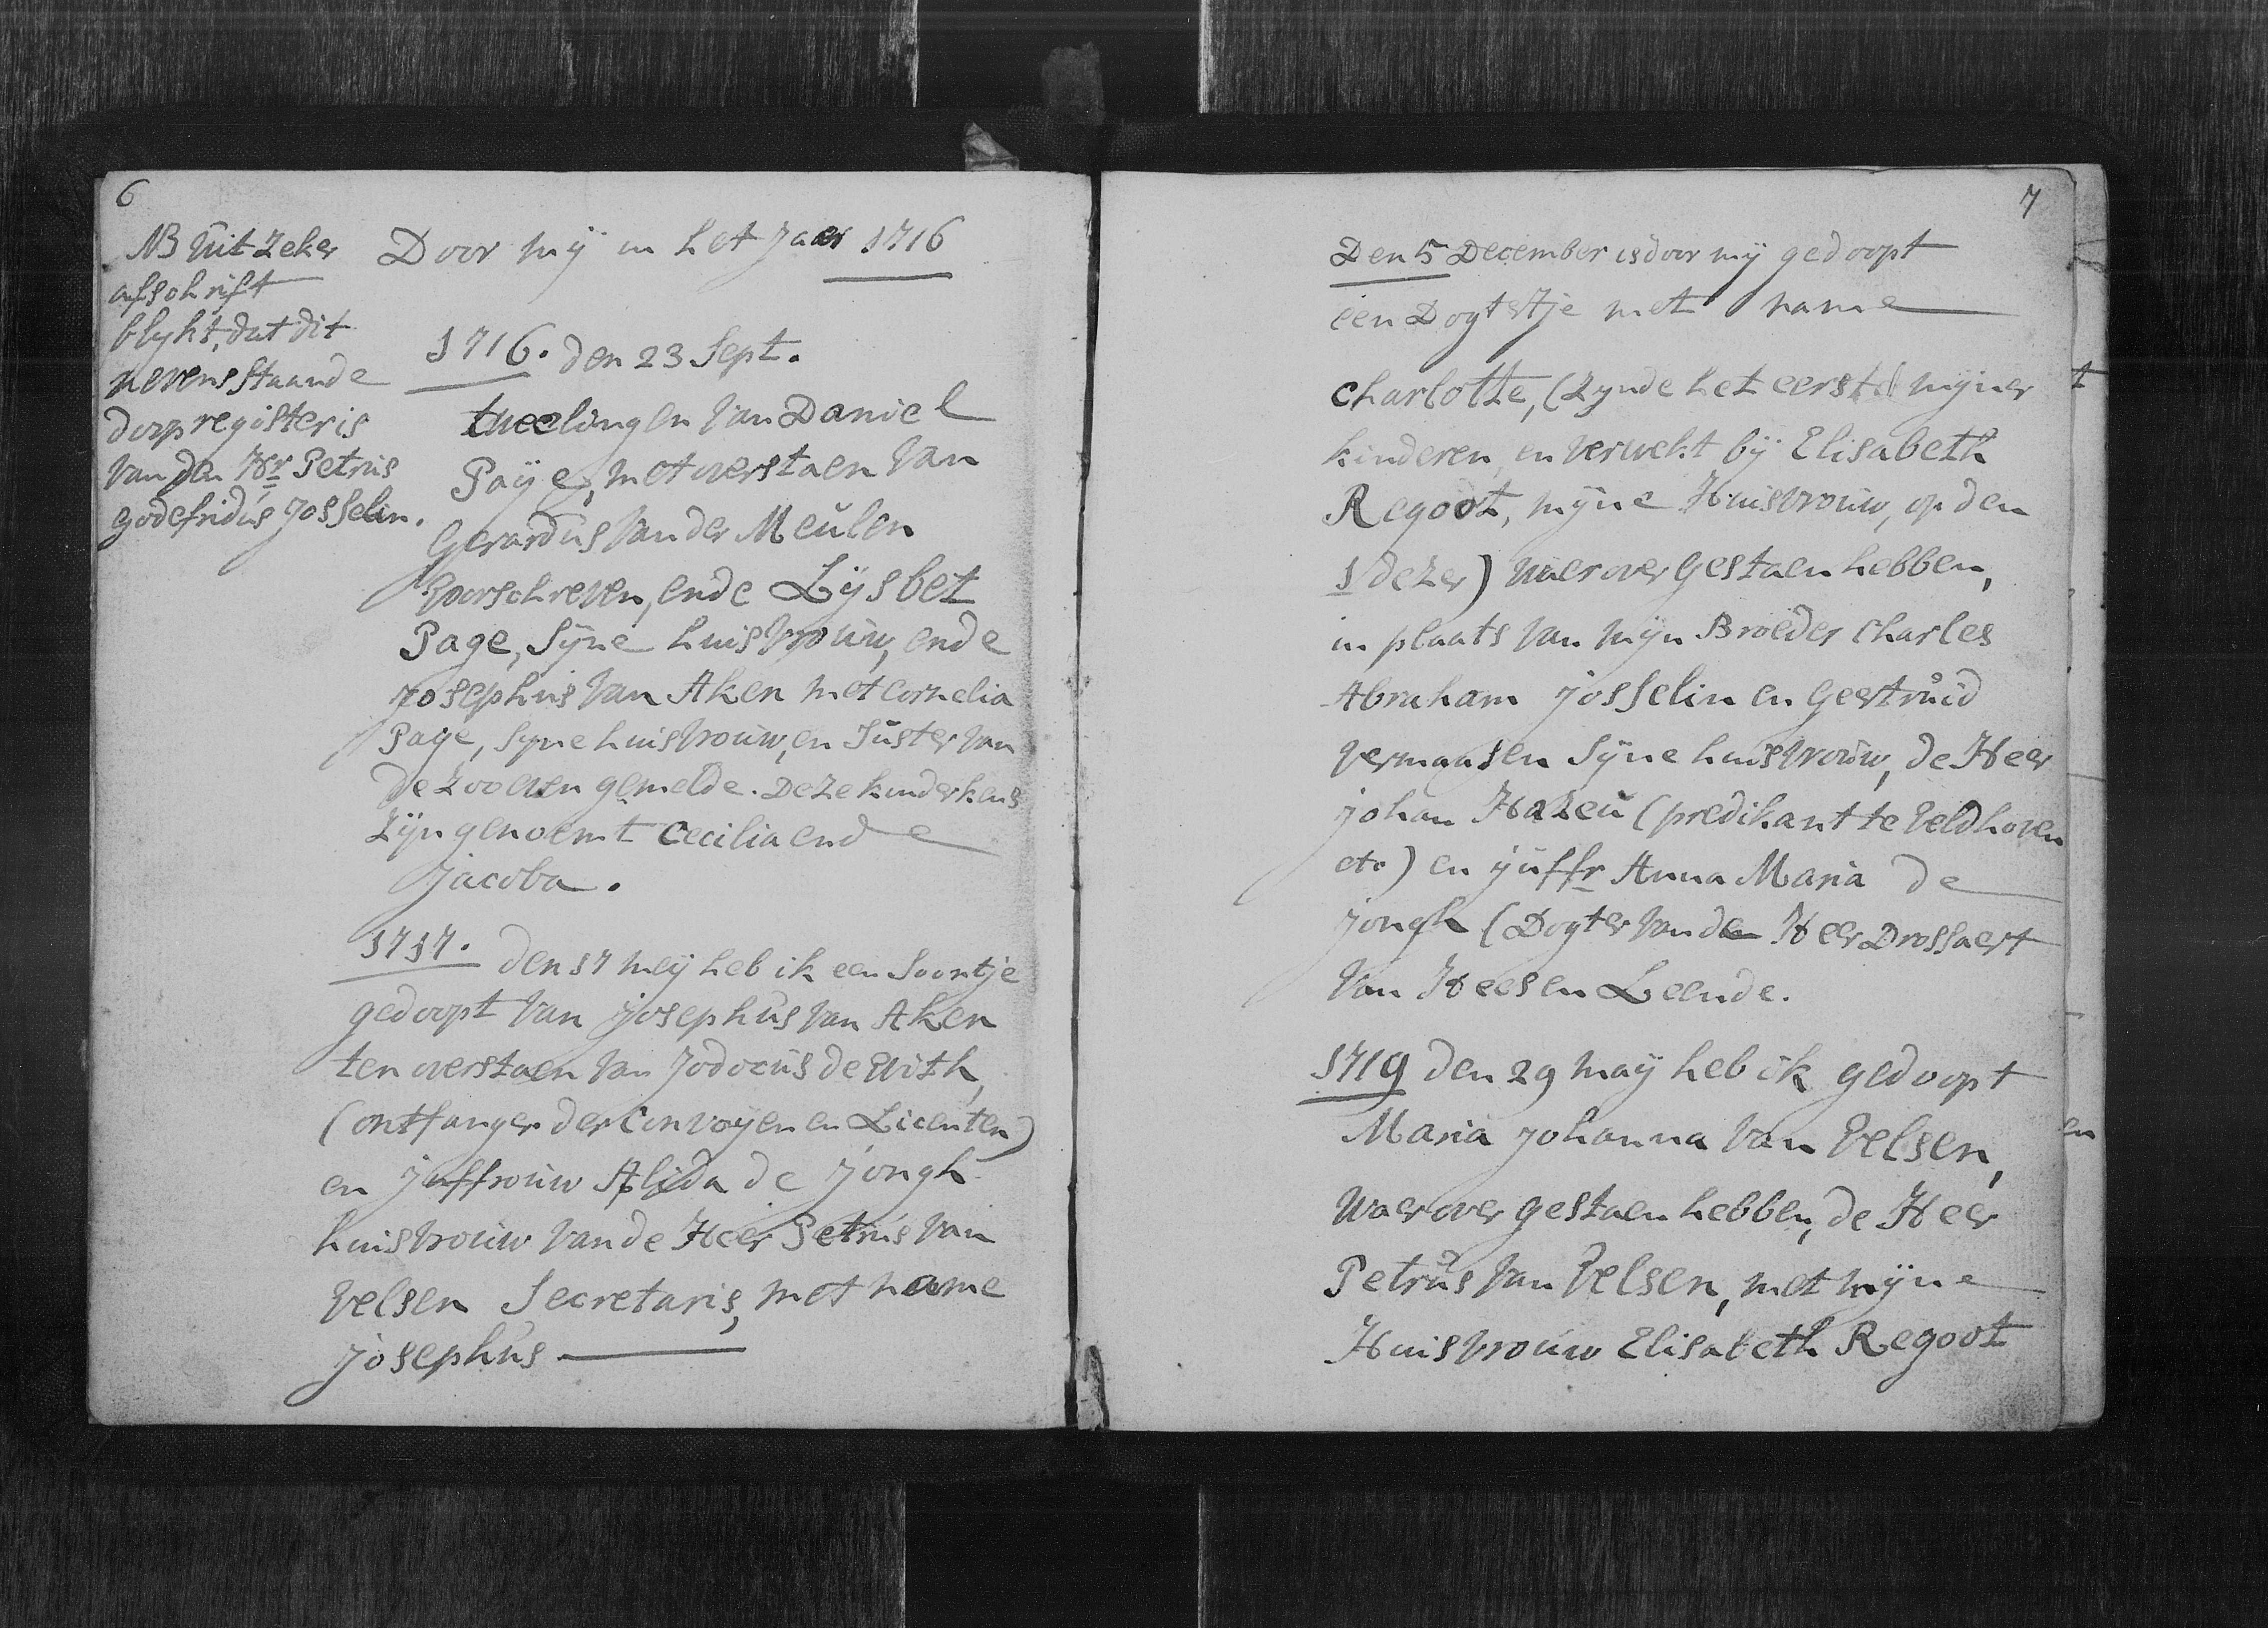 6
NB Uit Zeker
afschrift
blykt, dat dit
nevensstaande
doop register is
van den Hr Petrus
Godefridus Josselin.
Door mÿ in het Jaar 1716
1716. den 23 Sept.
tweelingen van Daniel
Paÿe, met overstaen van
Gerardus van der Meulen
voorschreven, ende Lÿsbet
Page, sÿne huisvrouw, ende
Josephus van Aken met Cornelia
Page, syne huisvrouw, en suster van
de zoo even gemelde. Deze kinderkens
zÿn genoemt Cecilia ende
Jacoba.
1717. den 17 meÿ heb ik een soontje
gedoopt van Josephus van Aken
ten overstaen van Jodocus de With,
(ontfanger der Convoyen en Licenten)
en Juffrouw Alida de Jongh
huisvrouw van de Heer Petrus van
Velsen Secretaris, met name
Josephus
7
Den 5 December is door mÿ gedoopt
een Dogtertje met name
Charlotte, (zynde het eerste mijner
kinderen, en verwekt bÿ Elisabeth
Regoot, mÿne Huisvrouw, op den
1 dezer) waer over gestaen hebben,
in plaats van mÿn Broeder Charles
Abraham Josselin en Geertruid
Vermaasen sÿne huisvrouw, de Heer
Johan Hazeu (predikant te Veldhoven
etc) en juffr Anna Maria de
Jongh (Dogter van den Heer Drossaert
van Heesen Leende.
1719 den 29 maÿ heb ik gedoopt
Maria Johanna van Velsen,
waer over gestaen hebben, de Heer
Petrus van Velsen, met mÿne
Huisvrouw Elisabeth Regoot
t
en